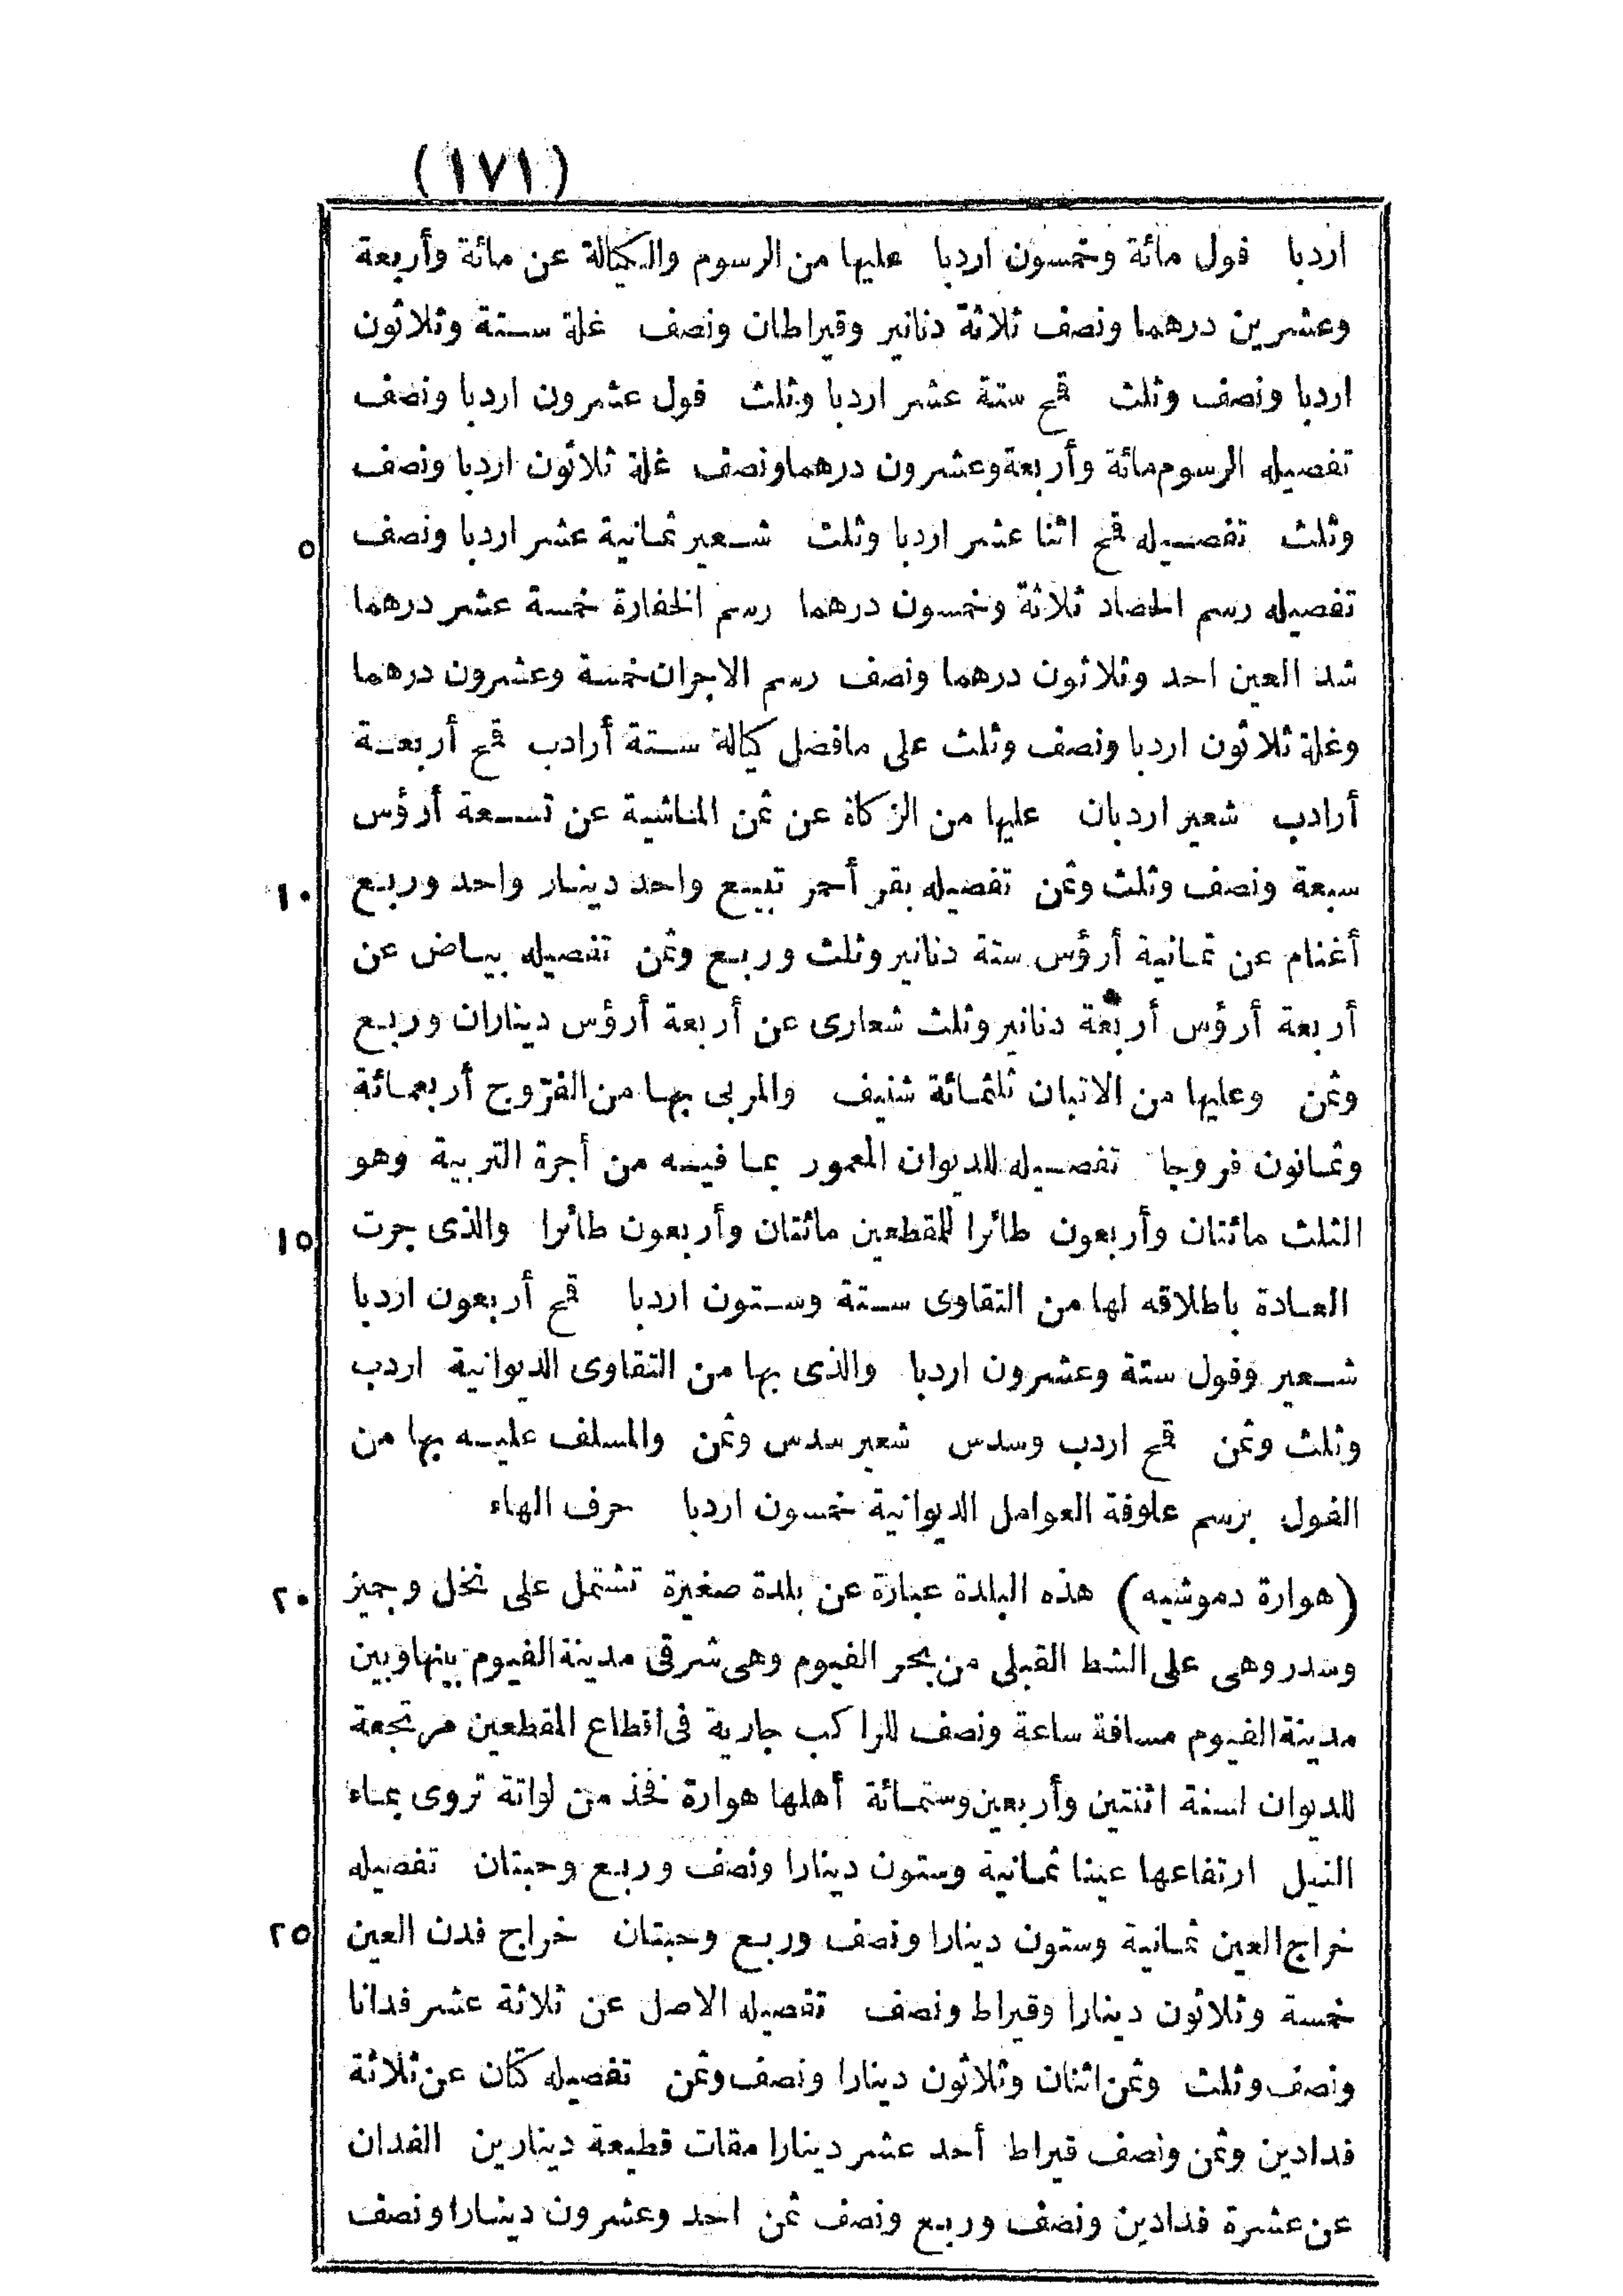 (١٧١)
اردبا فول مائة وخمسون اردبا عليها من الرسوم والكيالة عن مائة وأربعة
وعشرين درهما ونصف ثلاثة دنانير وقيراطان ونصف غلة ستة وثلاثون
اردبا ونصف وثلث قمح ستة عشر اردبا وثلث فول عشرون اردبا ونصف
تفصيله الرسوم مائة وأربعة وعشرون درهما ونصف غلة ثلاثون اردبا ونصف
٥ وثلث تفصيله قمح اثنا عشر اردبا وثلث شعير ثمانية عشر اردبا ونصف
تفصيله رسم الحصاد ثلاثة وخمسون درهما رسم الخفارة خمسة عشر درهما
شد العين احد وثلاثون درهما ونصف رسم الاجران خمسة وعشرون درهما
وغلة ثلاثون اردبا ونصف وثلث على مافضل كيالة ستة أرادب قمح أربعة
أرادب شعير اردبان عليها من الزكاة عن ثمن الماشية عن تسعة أرؤس
١٠ سبعة ونصف وثلث وثمن تفصيله بقر أحمر تبيع واحد دينار واحد وربع
أغنام عن ثمانية أرؤس ستة دنانير وثلث وربع وثمن تفصيله بياض عن
أربعة أرؤس أربعة دنانير وثلث شعارى عن أربعة أرؤس ديناران وربع
وثمن وعليها من الاتبان ثلثمائة شنيف والمربى بها من الفرّوج أربعمائة
وثمانون فروجا تفصيله للديوان المعمور بما فيه من أجرة التربية وهو
١٥ الثلث مائتان وأربعون طائرا للمقطعين مائتان وأربعون طائرا والذى جرت
العادة باطلاقه لها من التقاوى ستة وستون اردبا قمح أربعون اردبا
شعير وفول ستة وعشرون اردبا والذى بها من التقاوى الديوانية اردب
وثلث وثمن قمح اردب وسدس شعير سدس وثمن والمسلف عليه بها من
الفول برسم علوفة العوامل الديوانية خمسون اردبا حرف الهاء
٢٠ (هوارة دموشيه) هذه البلدة عبارة عن بلدة صغيرة تشتمل على نخل وجميز
وسدر وهى على الشط القبلى من بحر الفيوم وهى شرقى مدينة الفيوم بينها وبين
مدينة الفيوم مسافة ساعة ونصف للراكب جارية فى اقطاع المقطعين مرتجعة
للديوان لسنة اثنتين وأربعين وستمائة أهلها هوارة فخذ من لواتة تروى بماء
النيل ارتفاعها عينا ثمانية وستون دينارا ونصف وربع وحبتان تفصيله
٢٥ خراج العين ثمانية وستون دينارا ونصف وربع وحبتان خراج فدن العين
خمسة وثلاثون دينارا وقيراط ونصف تفصيله الاصل عن ثلاثة عشر فدانا
ونصف وثلث وثمن اثنان وثلاثون دينارا ونصف وثمن تفصيله كتان عن ثلاثة
فدادين وثمن ونصف قيراط أحد عشر دينارا مقات قطيعة دينارين الفدان
عن عشرة فدادين ونصف وربع ونصف ثمن احد وعشرون دينارا ونصف